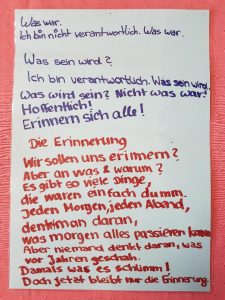 Was war.
Ich bin nicht verantwortlich. Was war.
Was sein wird?
Ich bin verantwortlich. Was sein wird.
Was wird sein? Nicht was war!
Hoffentlich!
Erinnern sich alle!
Die Erinnerung
Wir sollen uns erinnern?
Aber an was & warum?
Es gibt so viele Dinge,
die waren einfach dumm.
Jeden Morgen, jeden Abend,
denkt man daran,
was morgen alles passieren kann
Aber niemand denkt daran, was
vor Jahren geschah.
Damals was es schlimm!
Doch jetzt bleibt nur die Erinnerung.